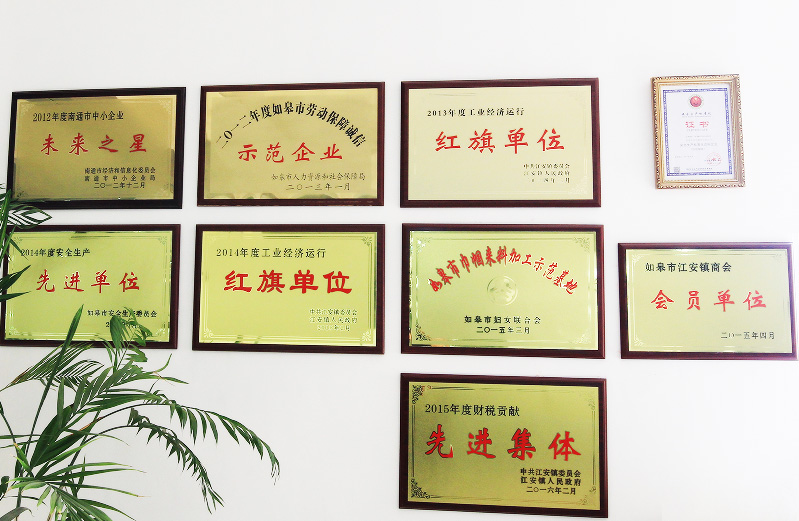 2012年度南通市中小企业
未来之星
南通市经济和信息化委员会
南通市中小企业局
二〇一二年十二月
二〇一二年度如皋市劳动保障诚信
示范企业
如皋市人力资源和社会保障局
二〇一三年一月
2013年度工业经济运行
红旗单位
中共江安镇委员会
江安镇人民政府
证书
2014年度安全生产
先进单位
如皋市安全生产委员会
2014年度工业经济运行
红旗单位
中共江安镇委员会
江安镇人民政府
如皋市巾帼来料加工示范基地
如皋市妇女联合会
二〇一五年三月
如皋市江安镇商会
会员单位
二〇一五年四月
2015年度财税贡献
先进集体
中共江安镇委员会
江安镇人民政府
二〇一六年二月